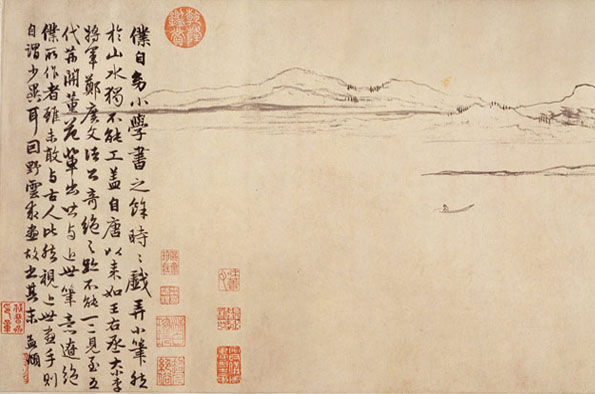 僕自幼小學書之餘時〻戲弄小筆然
於山水獨不能工盖自唐以来如王右丞大小李
將軍鄭廣文諸公奇絕之跡不能一二見至五
代荊關董范輩出皆与近世筆意遼絕
僕所作者雖未敢与古人比然視近世畫手則
自謂少異耳因野雲求畫故書其末 孟頫
乾隆鑑賞